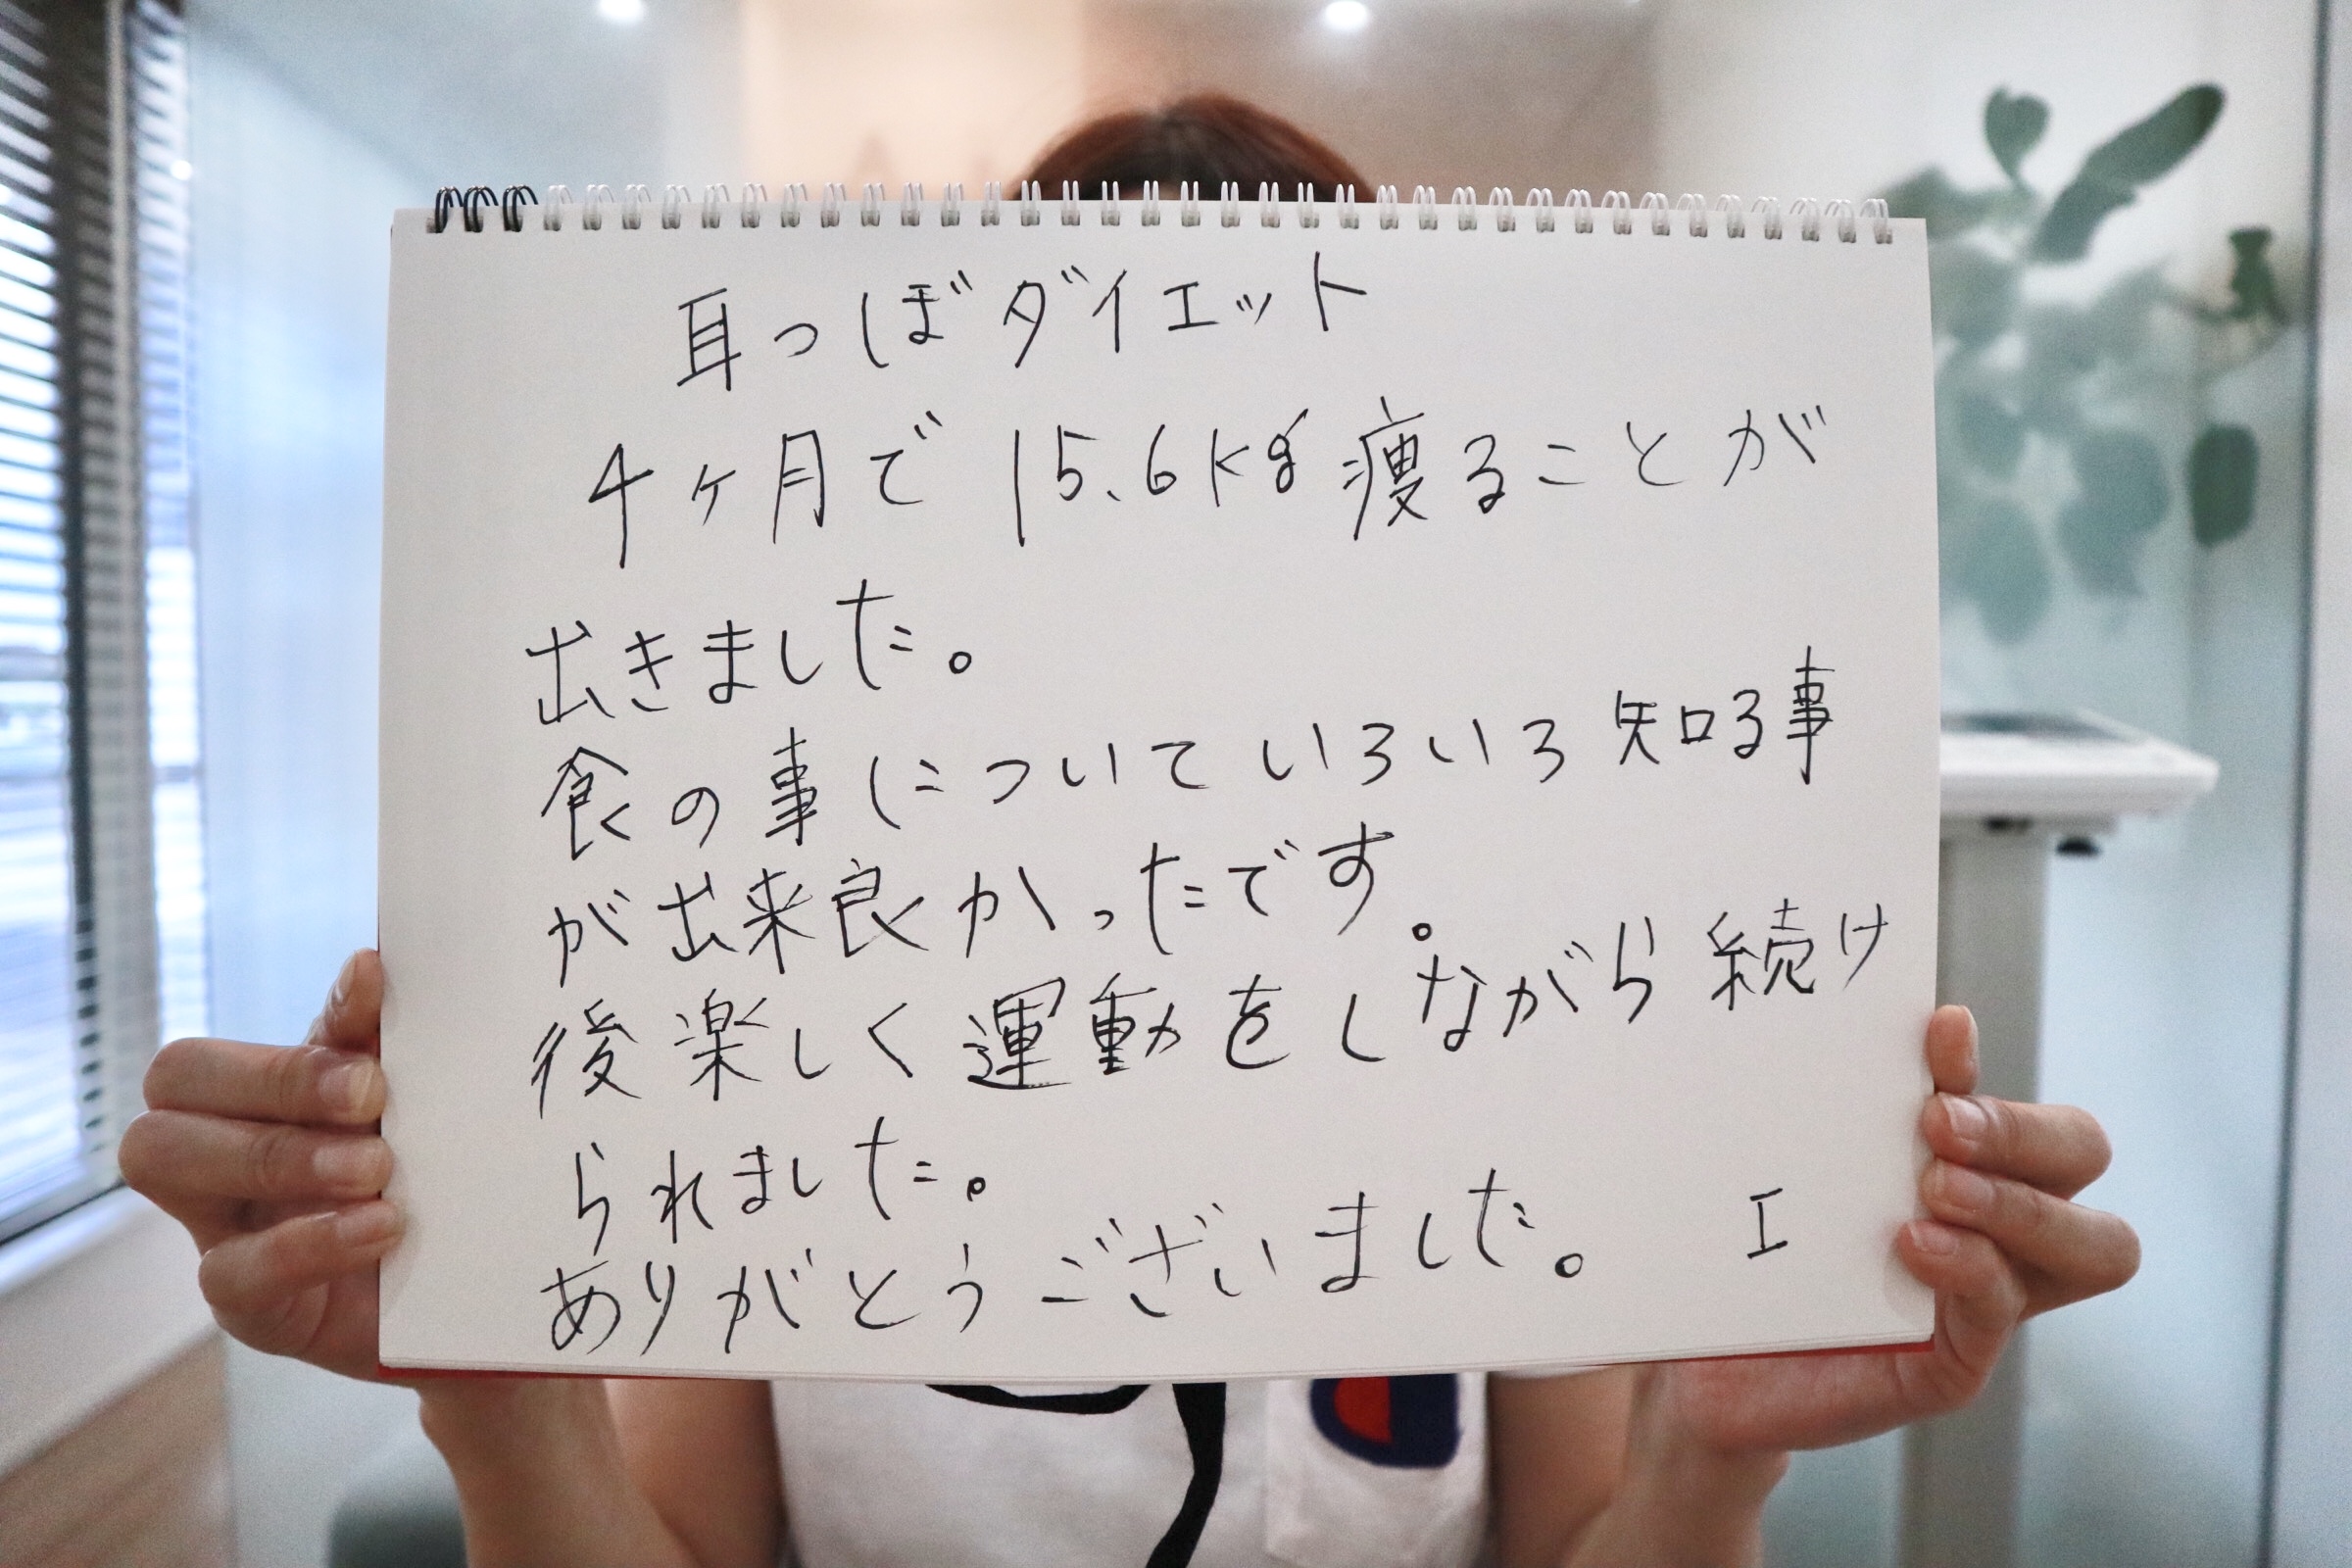 耳つぼダイエット
4ヶ月で 15.6kg痩ることが
出きました。
食の事についていろいろ知る事
が出来良かったです。
後楽しく運動をしながら続け
られました。
ありがとうございました。 エ